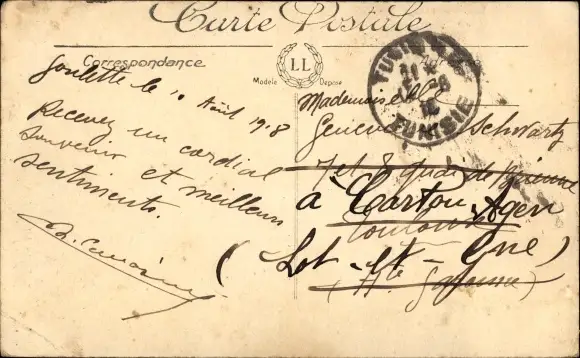 Carte Postale
Correspondance
LL
Modèle Déposé
Goulette le 10 Août 1918
Recevez un cordial
souvenir et meilleurs
sentiments.
TUNIS
TUNISIE
Mademoiselle
Geneviève Schwartz
7 et 8 quai de
à Cartou Agen
Toulouse
(Lot-et-Gne)
(Hte Garonne)